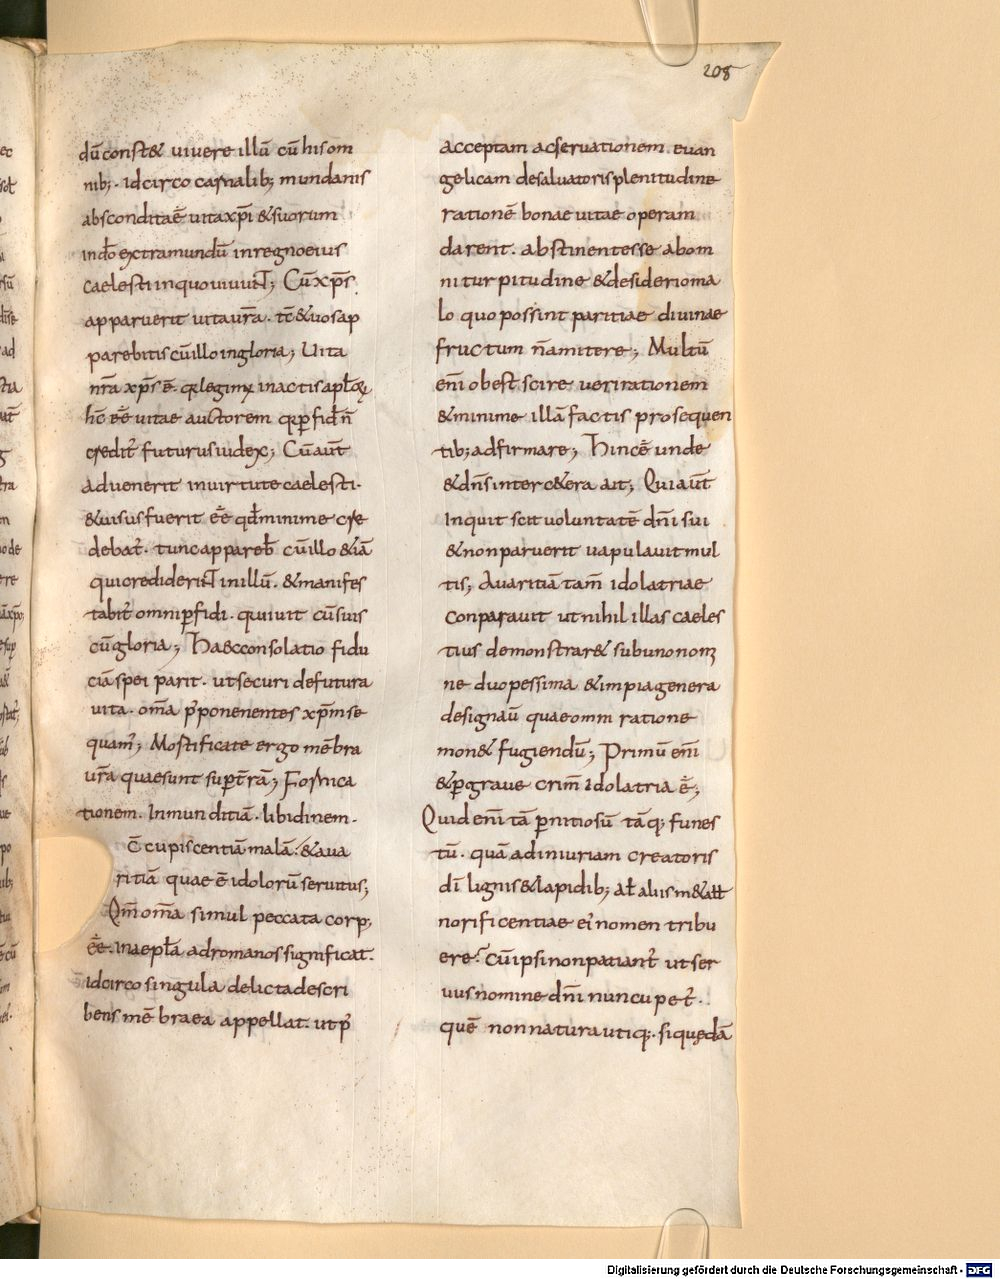 208
dū const& vivere illū cū his om
nib; · Idcirco carnalib; mundanis
absconditaē vita xp̄i &suorum
in dō extra mundū in regno eius
caelesti in quo vivunt; Cū xp̄s
apparuerit vita vr̄a · tc̄ & vos ap
parebitis cū illo in gloria; Vita
nr̄a xp̄s ē · q̄ legimus in actis
hc̄ eē vitae auctorem
credit̄ futurus iudex; Cū aūt
advenerit in virtute caelesti ·
& visus fuerit eē qđ minime cre
debat̄ · tunc appareb̄ cū illo & iā
qui crediderunt in illū · & manifes
tabit̄ omni p̄fidi · qui vivit cū suis
cū gloria; Haec consolatio fidu
ciā spei parit · ut securi de futura
vita · om̄a p̄ponenentes xp̄m se
quam̄; Mortificate ergo mēbra
vr̄a quae sunt sup t̄rā; Fornica
tionem · Inmunditiā · libidinem ·
c̄cupiscentiā malā · & ava
ritiā quae ē idolorū servitus;
Qm̄ om̄a simul peccata corp;
eē · in aepl̄a ad romanos significat ·
idcirco singula delicta descri
bens mēbra ea appellat · ut p̄
acceptam ac servationem evan
gelicam de salvatoris plenitudine
rationē bonae vitae operam
darent · abstinentes se ab om
ni turpitudine & desiderio ma
lo quo possint paritiae divinae
fructum n̄ amitere; Multū
eni obest scire veri rationem
& minime illā factis prosequen
tib; adfirmare; Hinc ē unde
& dn̄s inter c&era ait; Qui aūt
Inquit scit voluntatē dn̄i sui
& non paruerit vapulavit mul
tis; Avaritiā tam̄ idolatriae
conparavit ut nihil illas caeles
tius demonstrar& sub uno nom
ne duo pessima & impia genera
designaū quae omni ratione
mon& fugiendū; Primū eni
& p̄grave crim̄ idolatria ē;
Quid eni tā p̄nitiosū tāq; funes
tū · quā ad iniuriam creatoris
dī lignis & lapidib; ał aliis m&all
norificentiae ei nomen tribu
ere? cū ipsi non patiant̄ ut ser
uus nomine dn̄i nuncupet̄ ·
quē non natura utiq; · si quedā
Digitalisierung gefördert durch die Deutsche Forschungsgemeinschaft - DFG